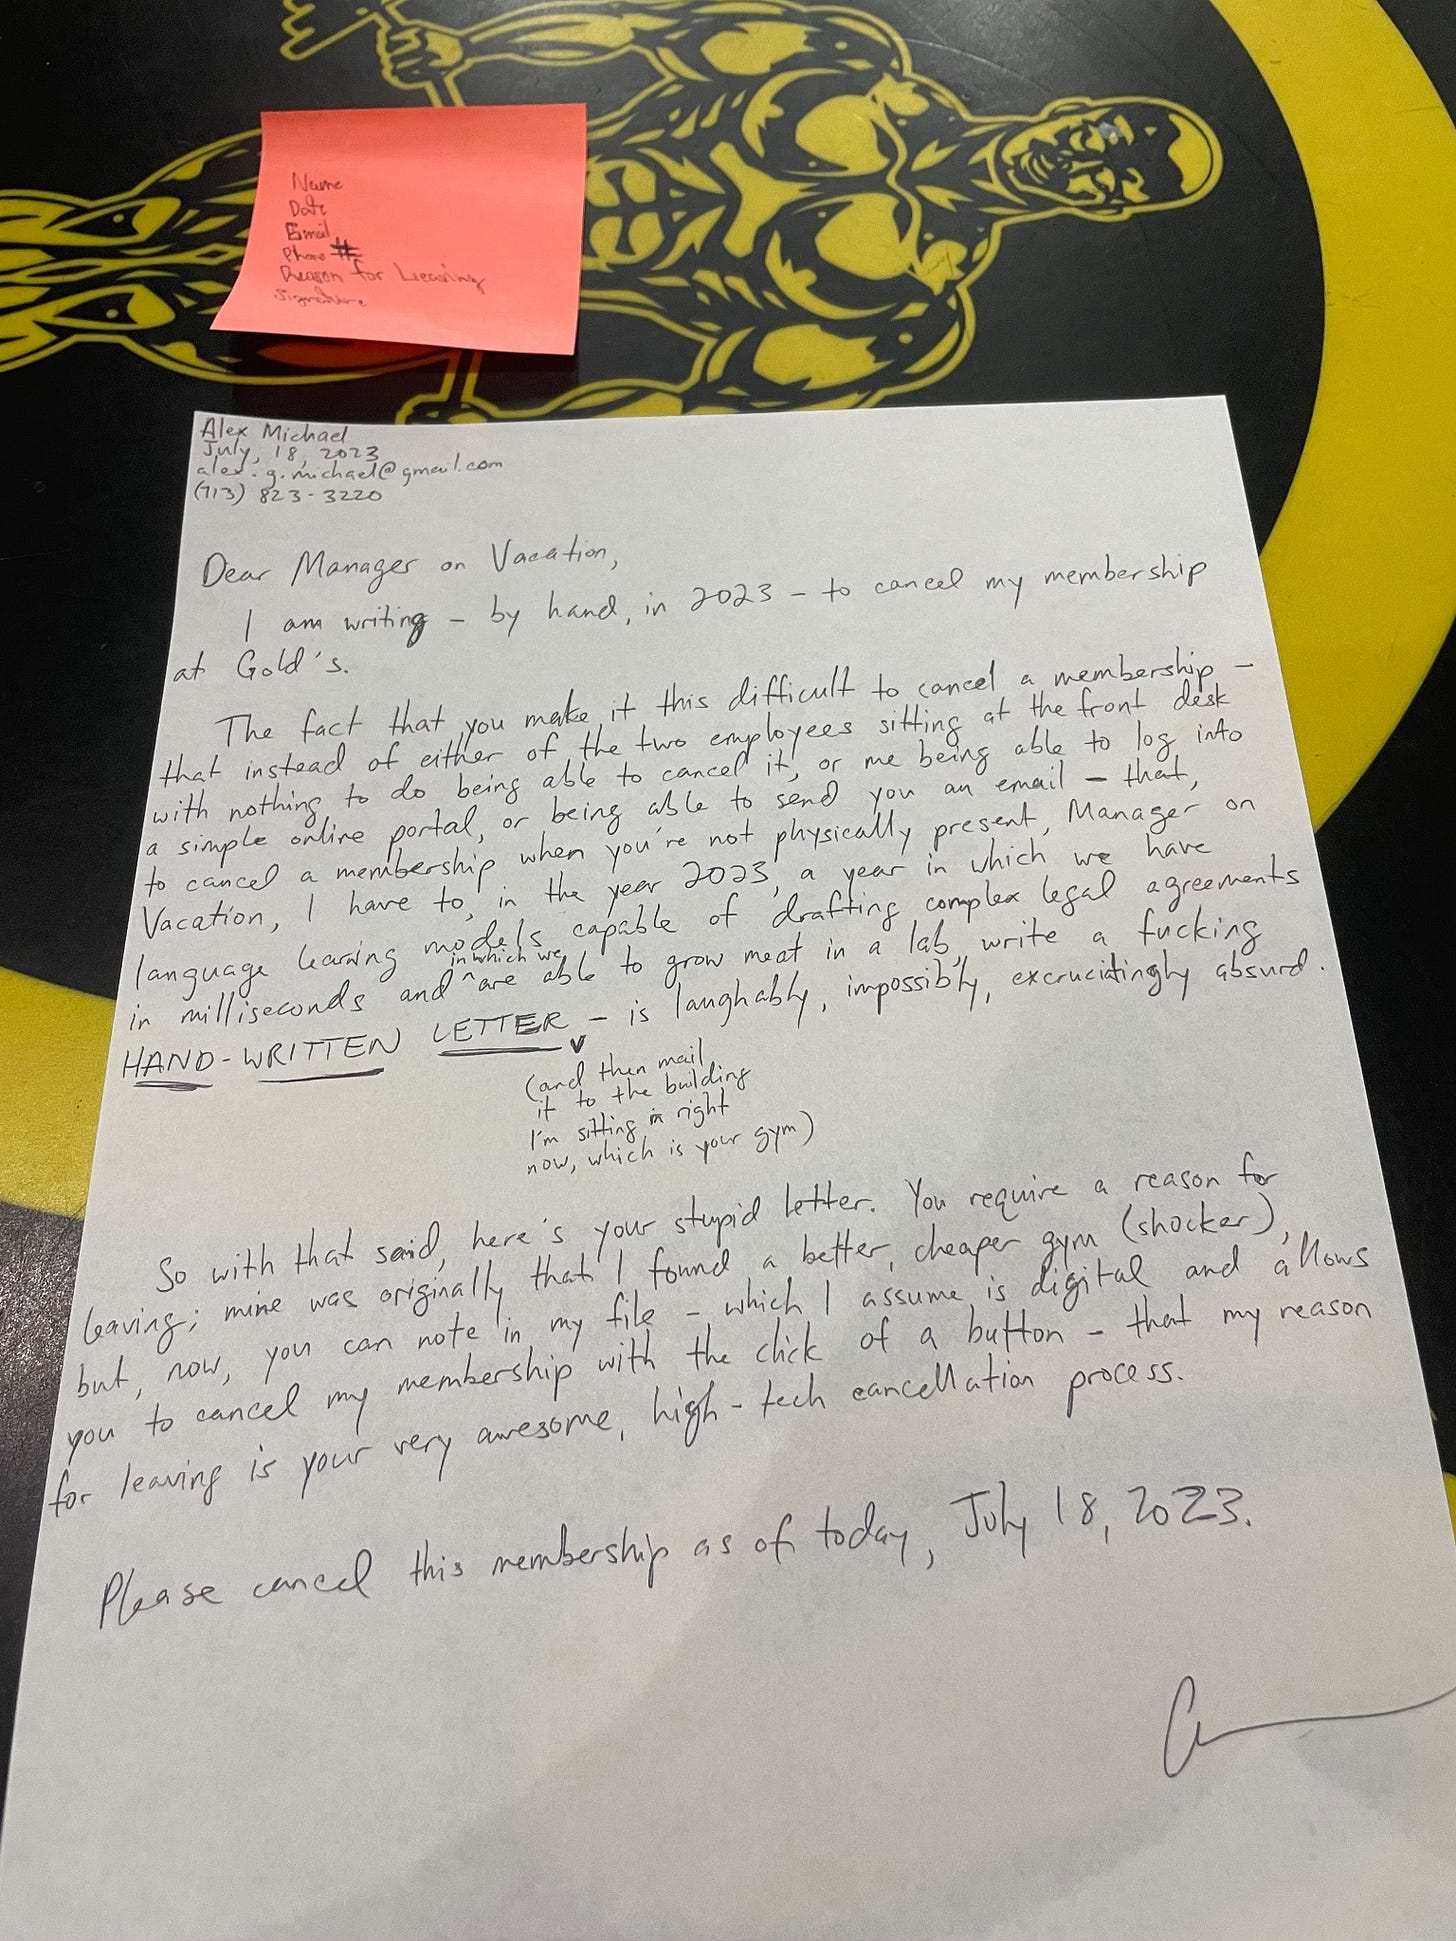 Name
Date
Email
Phone #
Reason for Leaving
Signature
Alex Michael
July, 18, 2023
alex.g.michael@gmail.com
(713) 823-3220
Dear Manager on Vacation,
I am writing - by hand, in 2023 - to cancel my membership
at Gold's.
The fact that you make it this difficult to cancel a membership -
that instead of either of the two employees sitting at the front desk
with nothing to do being able to cancel it, or me being able to log into
a simple online portal, or being able to send you an email - that,
to cancel a membership when you're not physically present, Manager on
Vacation, I have to, in the year 2023, a year in which we have
language learning models capable of drafting complex legal agreements
in milliseconds and ^ in which we are able to grow meat in a lab, write a fucking
HAND-WRITTEN LETTER - is laughably, impossibly, excruciatingly absurd.
(and then mail
it to the building
I'm sitting in right
now, which is your gym)
So with that said, here's your stupid letter. You require a reason for
leaving; mine was originally that I found a better, cheaper gym (shocker),
but, now, you can note in my file - which I assume is digital and allows
you to cancel my membership with the click of a button - that my reason
for leaving is your very awesome, high-tech cancellation process.
Please cancel this membership as of today, July 18, 2023.